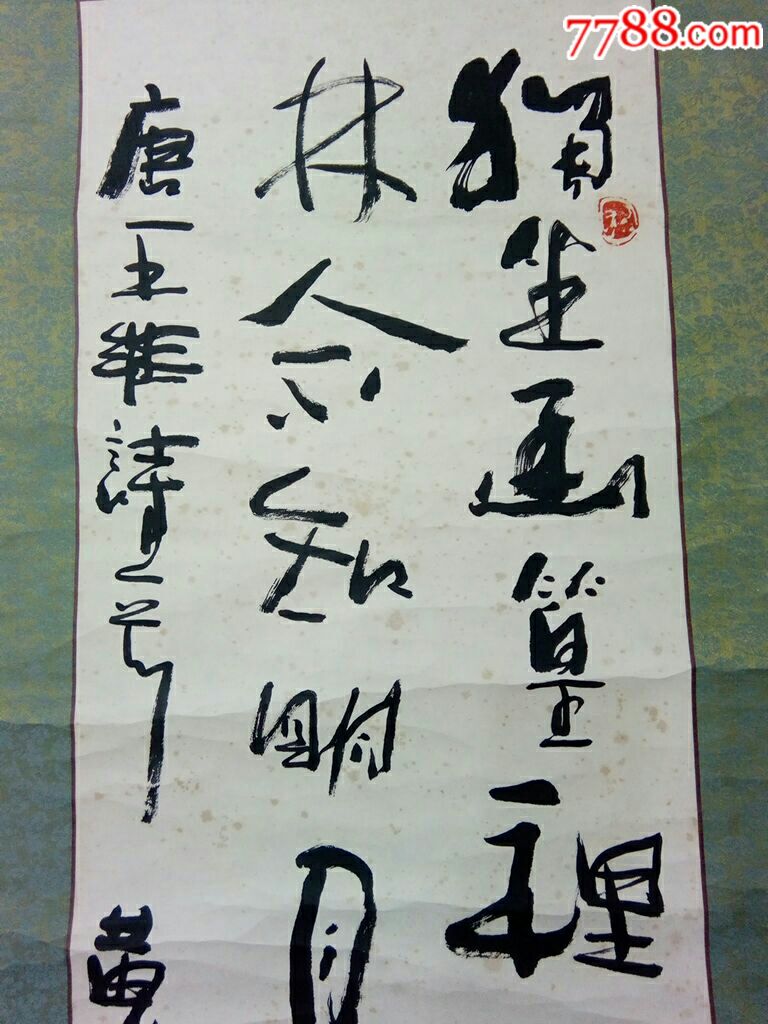 7788.com
独坐幽篁裡
林人不知明月
唐王維詩之一首
黄